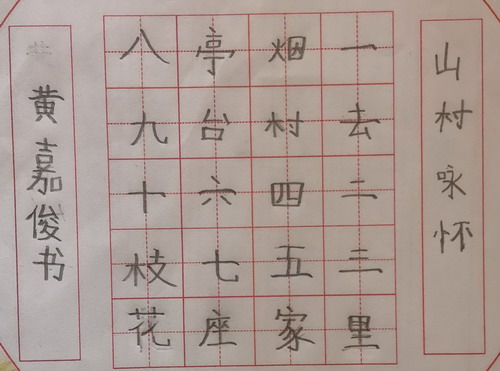 山村咏怀
一去二三里
烟村四五家
亭台六七座
八九十枝花
黄嘉俊书